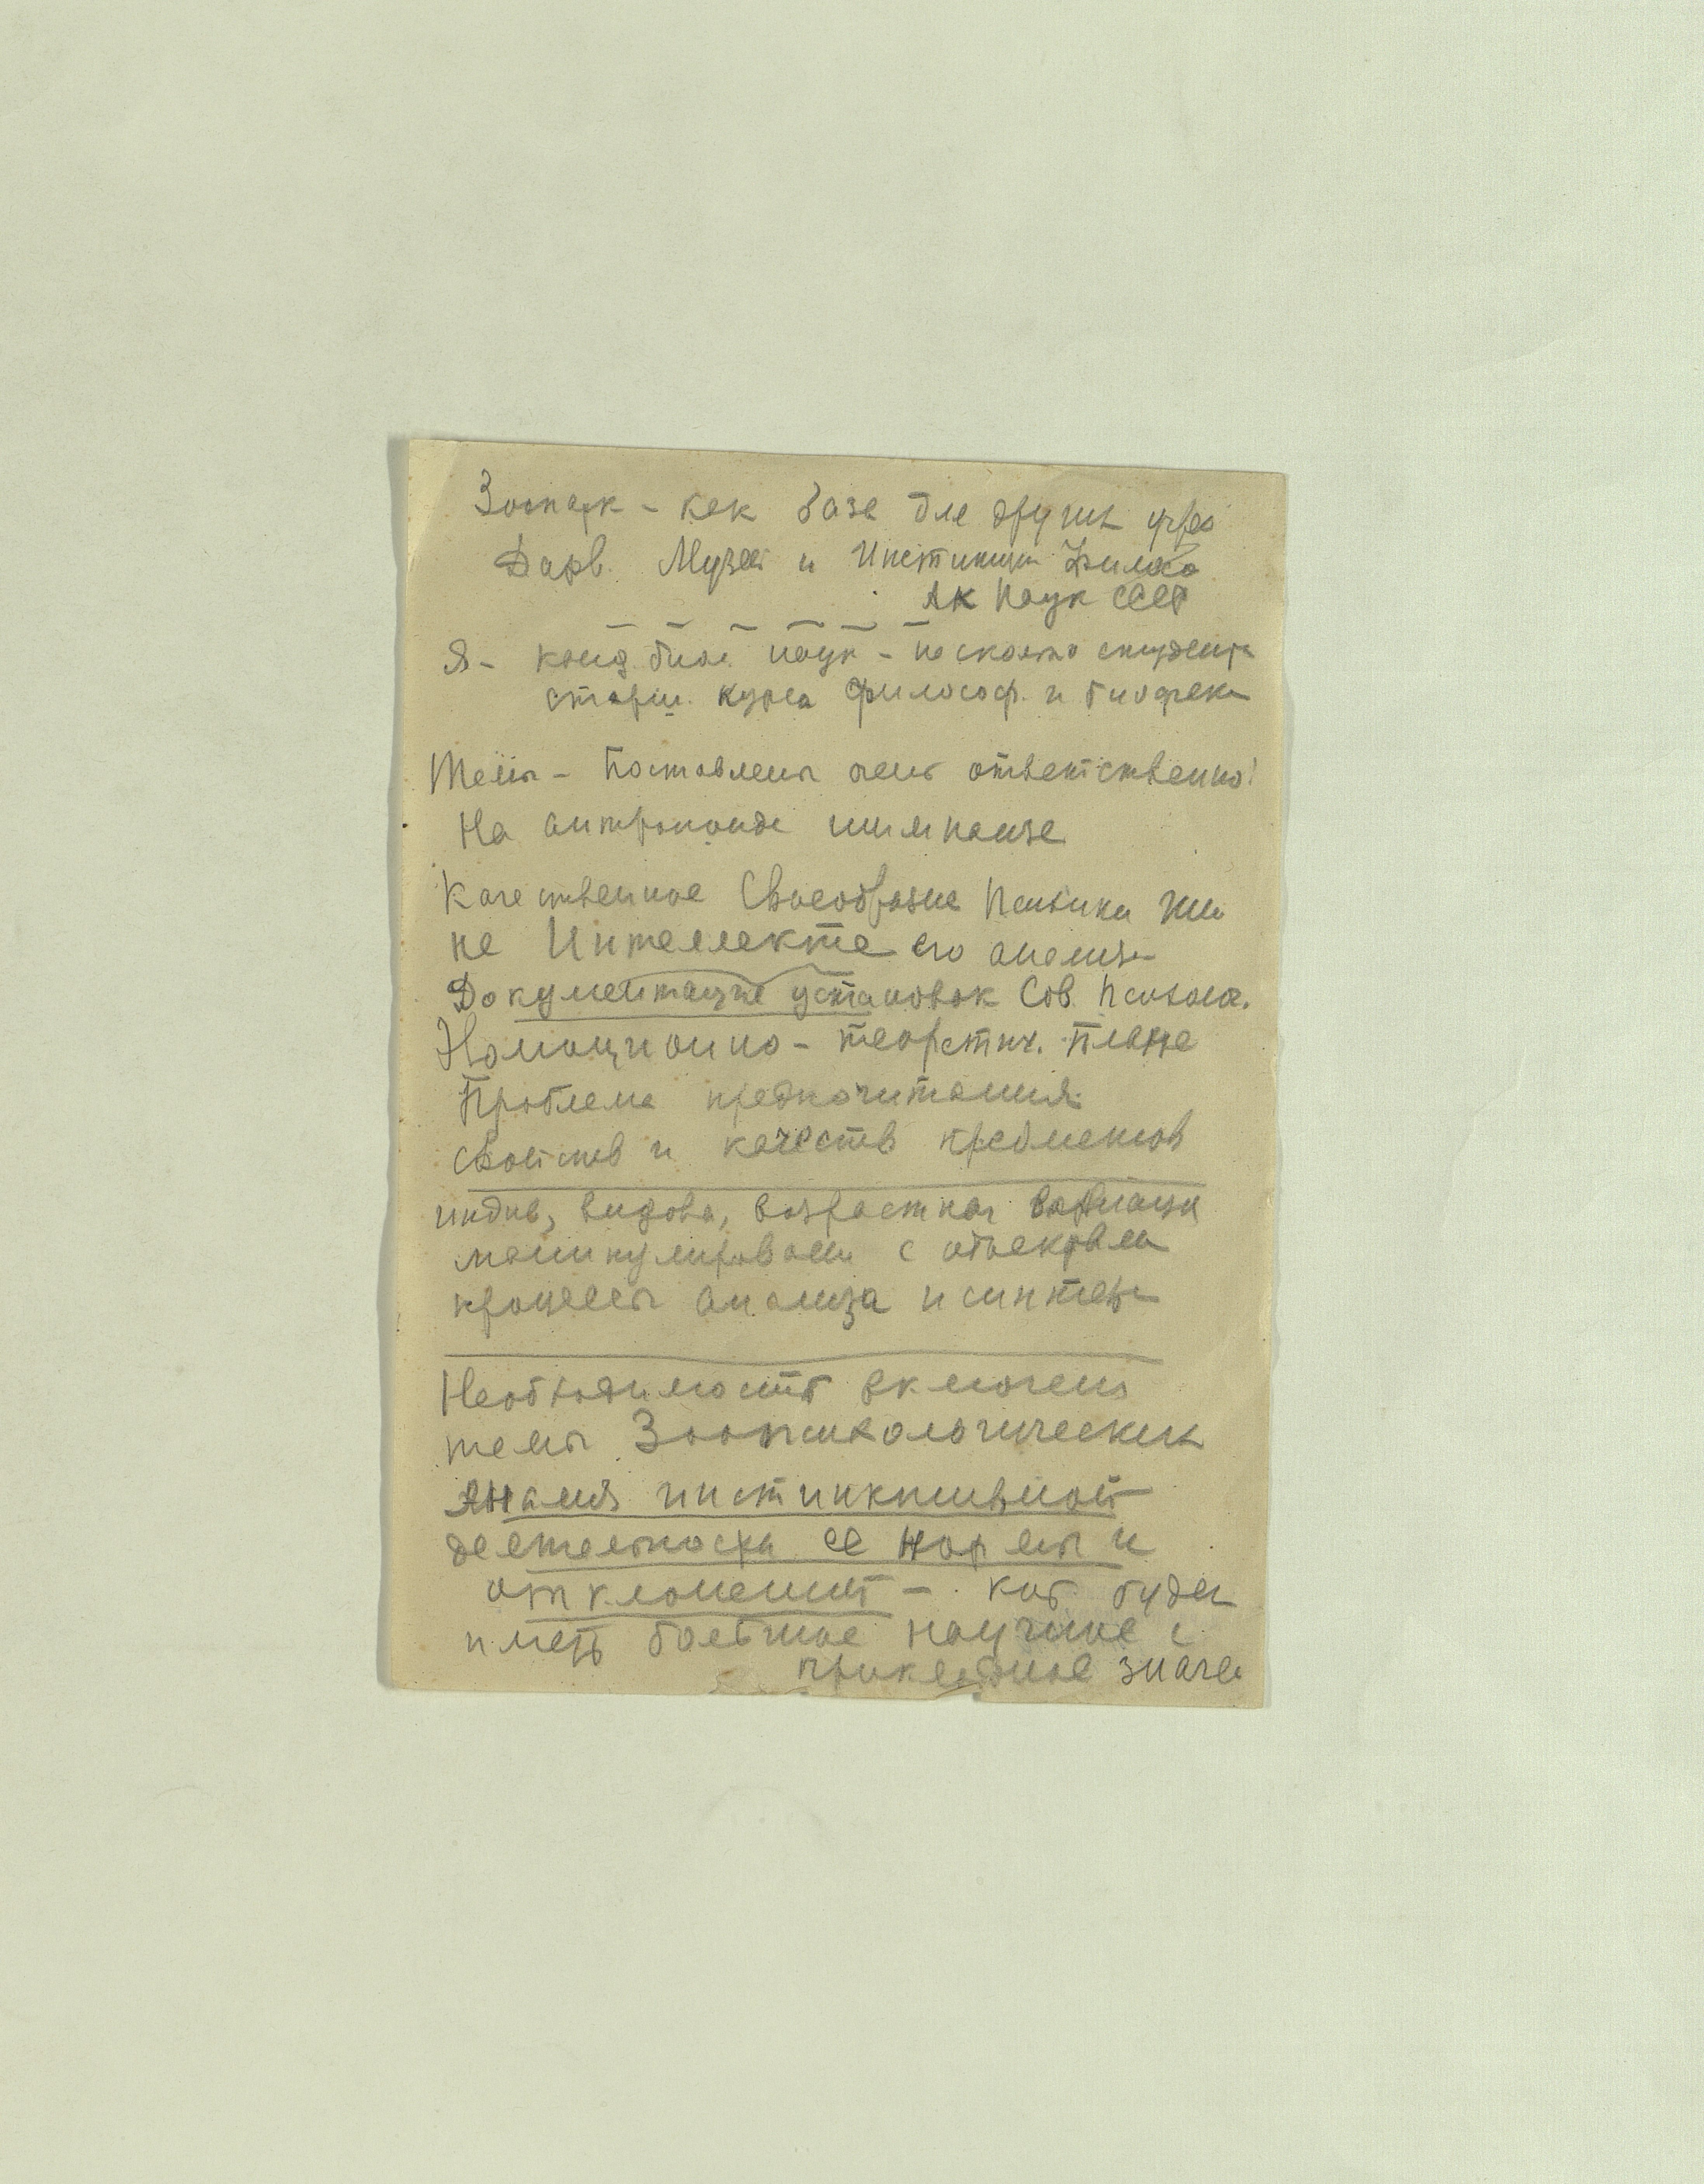 Зоопарк - как база для других учреж
Дарв. Музей и Институт Филосо
Ак Наук СССР
Я - канд биол. наук - несколько студента
старш. курса философ. и биофак
Темы - Поставлены очень ответственно!
На антропоиде шимпанзе
Качественное Своеобразие Психики Шим
не Интеллекте его анализ
Документация установок Сов. Психолог.
теоретич. Плане
Проблема предпочитания
свойств и качеств предметов
индив, видова, возрастная вариации
манипулировани с объектами
процессы анализа и синтеза
Необходимость включения
темы Зоопсихологических
Анализ инстинктивной
деятельности ее нормы и
отклонений - кот будет
иметь большое научное и
прикладное значе